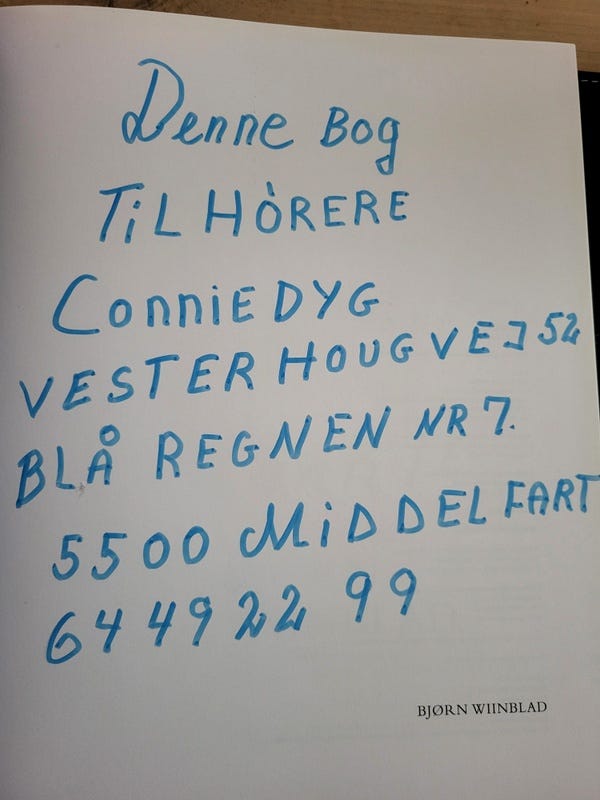 Denne BOg
TiL HÒRERE
ConniE DYG
VESTER HOUGVEJ 52
BLÅ REGNEN NR 7.
5500 MiDDELFART
64 49 22 99
BJØRN WIINBLAD